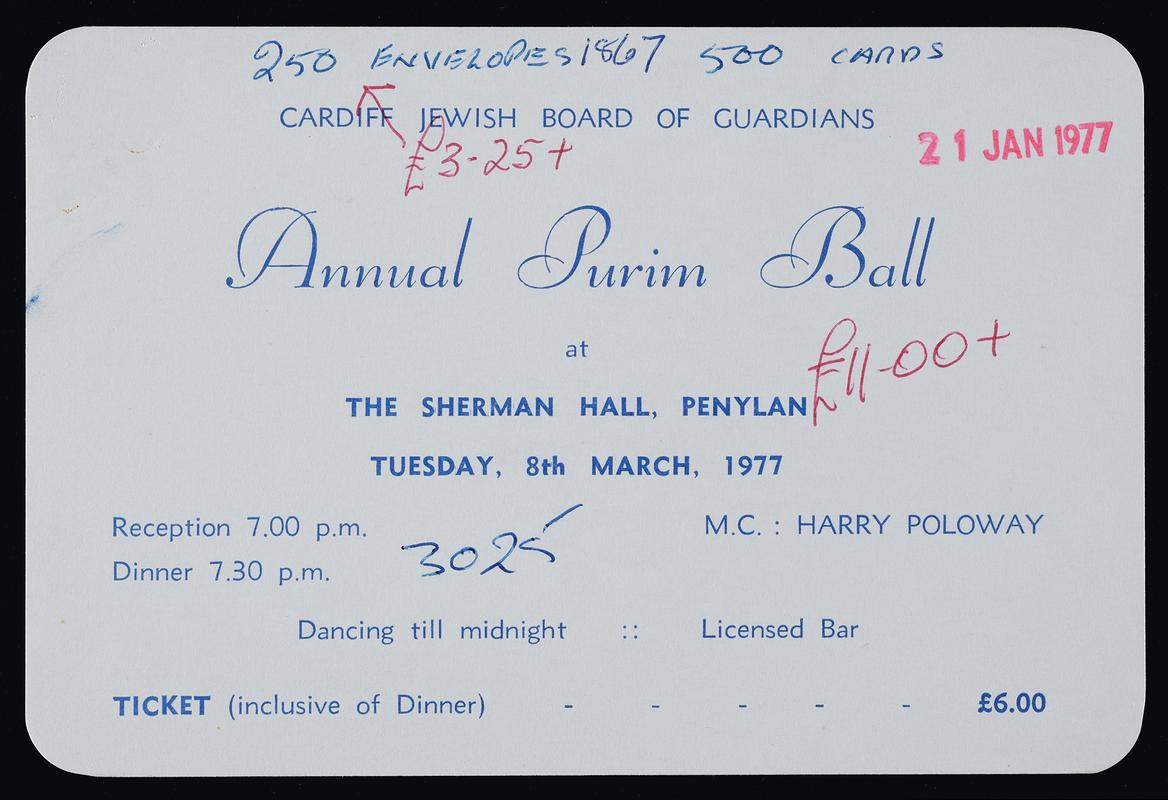 250 ENVELOPES 1867 500 CARDS
CARDIFF JEWISH BOARD OF GUARDIANS
£3-25+
21 JAN 1977
Annual Purim Ball
at
£11-00+
THE SHERMAN HALL, PENYLAN
TUESDAY, 8th MARCH, 1977
Reception 7.00 p.m.
M.C. : HARRY POLOWAY
3025
Dinner 7.30 p.m.
Dancing till midnight :: Licensed Bar
TICKET (inclusive of Dinner) - - - - - £6.00